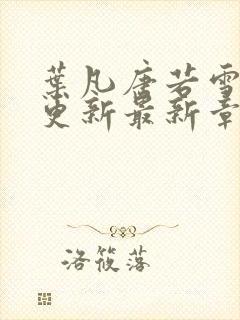 葉凡唐若雪
更新最新章
洛筱落